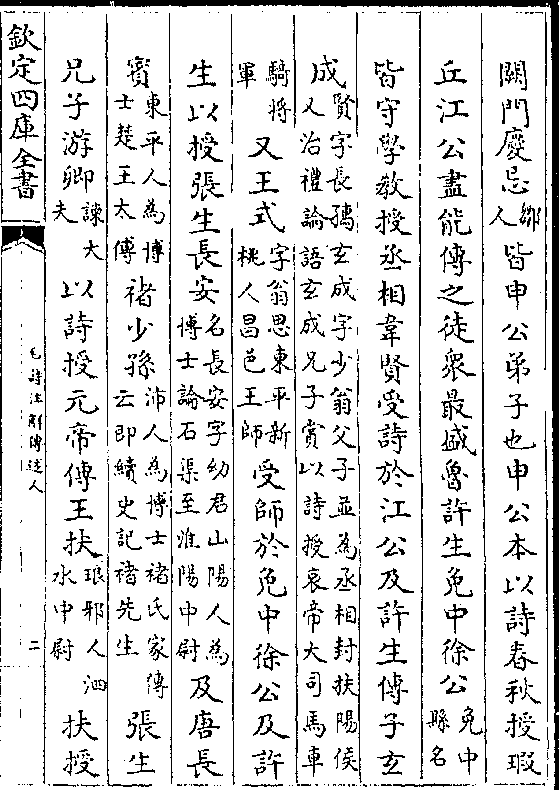 闕門慶忌鄒人皆申公弟子也申公本以詩春秋授瑕
丘江公盡能傳之徒衆最盛魯許生免中徐公免中縣名
皆守學教授丞相韋賢受詩於江公及許生傳子玄
成賢字長孺玄成字少翁父子並為丞相封扶陽侯又治禮論語玄成兄子賞以詩授哀帝大司馬車
騎將軍又王式字翁思東平新桃人昌邑王師受師於免中徐公及許
生以授張生長安名長安字幼君山陽人為博士論石渠至淮陽中尉及唐長
賓東平人為博士楚王太傅褚少孫沛人為博士褚氏家傳云即續史記褚先生張生
兄子游卿諫大夫以詩授元帝傳王扶琅邪人泗水中尉扶授
欽定四庫全書
毛詩注解傳述人
二